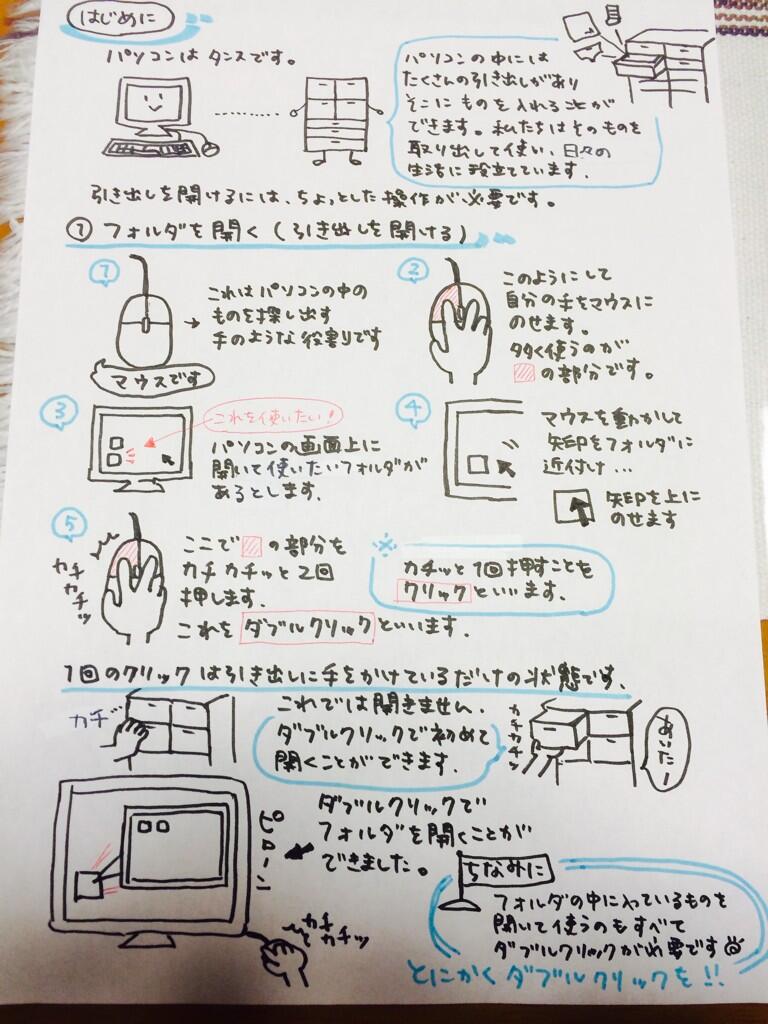 はじめに
パソコンはタンスです。
パソコンの中には
たくさんの引き出しがあり
そこにものを入れることが
できます。私たちはそのものを
取り出して使い、日々の
生活に役立ています。
引き出しを開けるには、ちょっとした操作が必要です。
① フォルダを開く(引き出しを開ける)
①
これはパソコンの中の
ものを探し出す
手のような役割りです
マウスです
②
このようにして
自分の手をマウスに
のせます。
多く使うのが
の部分です。
③
これを使いたい!
パソコンの画面上に
開いて使いたいフォルダが
あるとします.
④
マウスを動かして
矢印をフォルダに
近付け…
矢印を上に
のせます
⑤
カチカチッ
ここで の部分を
カチカチッと2回
押します.
これを ダブルクリック といいます.
※
カチッと1回押すことを
クリック といいます.
1回のクリックは引き出しに手をかけているだけの状態です.
カチッ
これでは開きません.
ダブルクリックで初めて
開くことができます.
カチカチッ
あいたー
ピローン
ダブルクリックで
フォルダを開くことが
できました。
カチカチッ
ちなみに
フォルダの中に入っているものを
開いて使うのもすべて
ダブルクリックが必要です
とにかくダブルクリックを!!